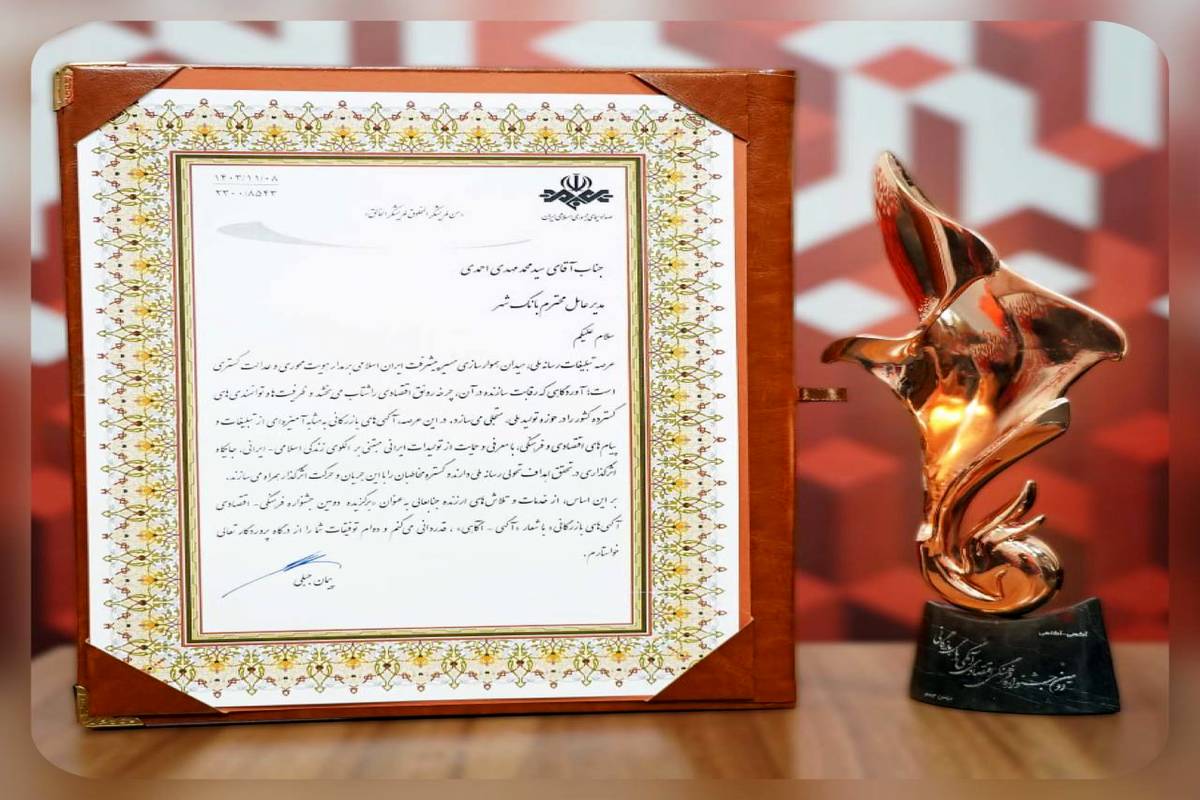 ۱۴۰۳/۱۱/۰۸
۲۳۰۰/۸۵۴۳
صدا و سیمای جمهوری اسلامی ایران
«من لم یشکر المخلوق لم یشکر الخالق»
جناب آقای سید محمد مهدی احمدی
مدیر عامل محترم بانک شهر
سلام علیکم
عرصه تبلیغات رسانه ملی، میدان هموارسازی مسیر پیشرفت ایران اسلامی بر مدار هویت محوری و عدالت گستری
است؛ آوردگاهی که رقابت سازنده در آن، چرخه رونق اقتصادی را شتاب می‌بخشد و ظرفیت‌ها و توانمندی‌های
گسترده کشور را در حوزه تولید ملی، متجلی می‌سازد. در این عرصه، آگهی‌های بازرگانی به مثابه آمیزه‌ای از تبلیغات و
پیام‌های اقتصادی و فرهنگی، با معرفی و حمایت از تولیدات ایرانی مبتنی بر الگوی زندگی اسلامی - ایرانی، جایگاه
اثرگذاری در تحقق اهداف تحولی رسانه ملی دارند و گستره مخاطبان را با این جریان و حرکت اثرگذار همراه می‌سازند.
بر این اساس، از خدمات و تلاش‌های ارزنده جنابعالی به عنوان «برگزیده دومین جشنواره فرهنگی - اقتصادی
آگهی‌های بازرگانی» با شعار «آگهی - آگاهی» ، قدردانی می‌کنم و دوام توفیقات شما را از درگاه پروردگار متعالی
خواستارم.
پیمان جبلی
آگهی-آگاهی
دومین جشنواره فرهنگی اقتصادی آگهی‌های بازرگانی